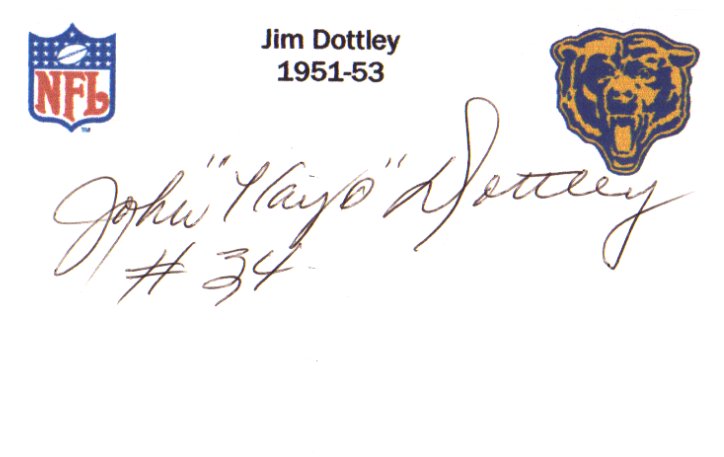 NFL
TM
Jim Dottley
1951-53
John "Kayo" Dottley
# 34